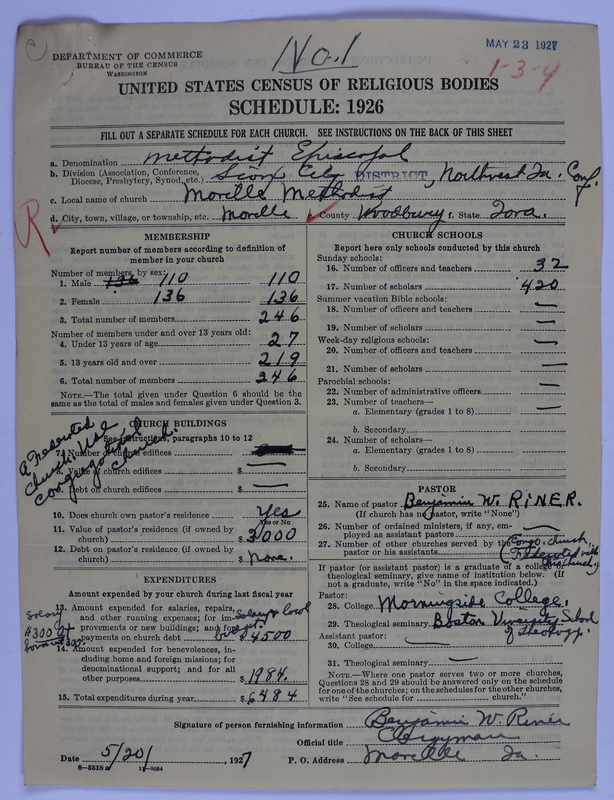 DEPARTMENT OF COMMERCE
BUREAU OF THE CENSUS
WASHINGTON
No. 1
MAY 23 1927
1-3-4
UNITED STATES CENSUS OF RELIGIOUS BODIES
SCHEDULE: 1926
FILL OUT A SEPARATE SCHEDULE FOR EACH CHURCH. SEE INSTRUCTIONS ON THE BACK OF THIS SHEET
a. Denomination Methodist Episcopal
b. Division (Association, Conference, Diocese, Presbytery, Synod, etc.) Sioux City DISTRICT, Northwest Ia. Conf.
c. Local name of church Morville Methodist
d. City, town, village, or township, etc. Morville e. County Woodbury f. State Iowa.
R
MEMBERSHIP
Report number of members according to definition of member in your church
Number of members, by sex:
1. Male 136 110 110
2. Female 136 136
3. Total number of members 246
Number of members under and over 13 years old:
4. Under 13 years of age 27
5. 13 years old and over 219
6. Total number of members 246
NOTE.—The total given under Question 6 should be the same as the total of males and females given under Question 3.
CHURCH BUILDINGS
See instructions, paragraphs 10 to 12
A Federated Church. Use Congregational Church.
7. Number of church edifices
8. Value of church edifices $ —
9. Debt on church edifices $ —
10. Does church own pastor's residence Yes
Yes or No
11. Value of pastor's residence (if owned by church) $ 3000
12. Debt on pastor's residence (if owned by church) $ None.
EXPENDITURES
Amount expended by your church during last fiscal year
13. Amount expended for salaries, repairs, and other running expenses; for improvements or new buildings; and for payments on church debt Salary & local budget. $4500
Salary
14. Amount expended for benevolences, including home and foreign missions; for denominational support; and for all other purposes $ 1984.
15. Total expenditures during year $ 6484
CHURCH SCHOOLS
Report here only schools conducted by this church
Sunday schools:
16. Number of officers and teachers 32
17. Number of scholars 420
Summer vacation Bible schools:
18. Number of officers and teachers —
19. Number of scholars —
Week-day religious schools:
20. Number of officers and teachers —
21. Number of scholars —
Parochial schools:
22. Number of administrative officers —
23. Number of teachers—
a. Elementary (grades 1 to 8) —
b. Secondary
24. Number of scholars—
a. Elementary (grades 1 to 8) —
b. Secondary —
PASTOR
25. Name of pastor Benjamin W. RINER.
(If church has no pastor, write "None")
26. Number of ordained ministers, if any, employed as assistant pastors —
27. Number of other churches served by the pastor or his assistants Congo. church, (Federated with this church.)
If pastor (or assistant pastor) is a graduate of a college or theological seminary, give name of institution below. (If not a graduate, write "No" in the space indicated.)
Pastor:
28. College Morningside College.
29. Theological seminary Boston University School of Theology.
Assistant pastor:
30. College —
31. Theological seminary —
NOTE.—Where one pastor serves two or more churches, Questions 28 and 29 should be answered only on the schedule for one of the churches; on the schedules for the other churches, write "See schedule for church."
Signature of person furnishing information Benjamin W. Riner
Official title Clergyman
Date 5/20/, 1927 P. O. Address Morville Ia.
8-5518a 11-9064